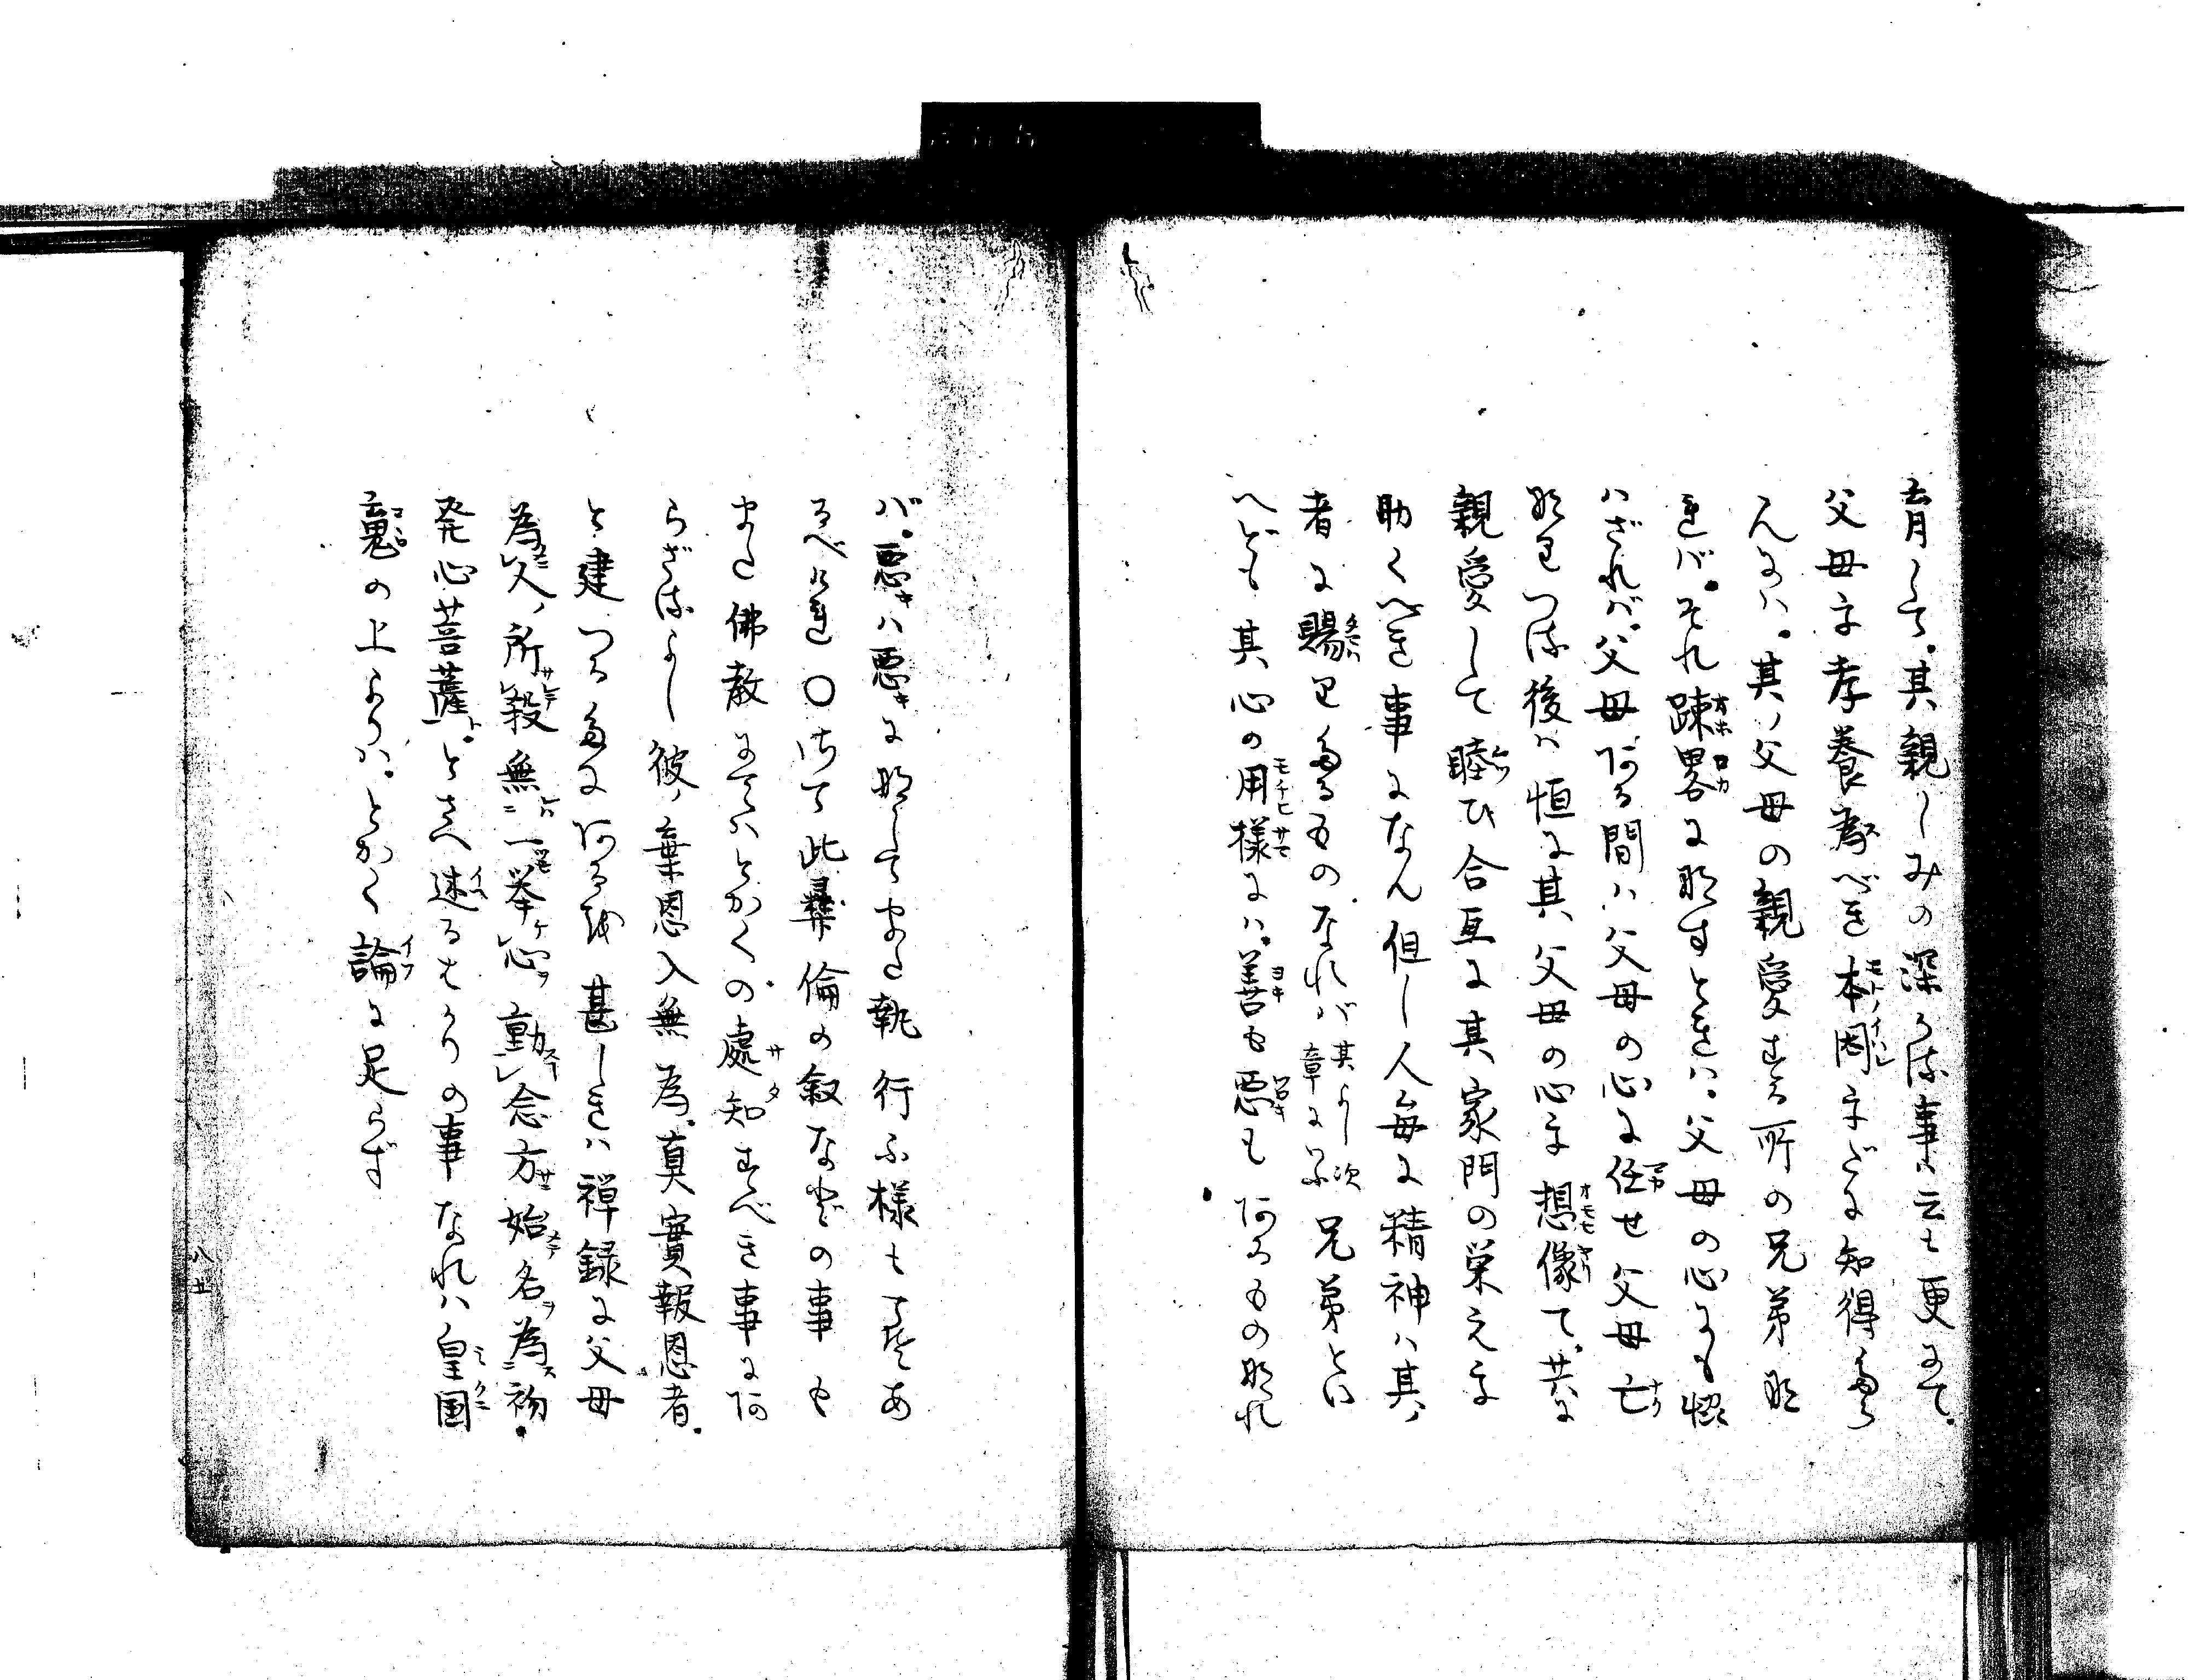 育して。其親しみの深かる事ハ云も更にて。
父母に孝養為べき本因をだに知得たら
んにハ。其ノ父母の親愛する所の兄弟な
れバ。それ疎畧に為すときハ。父母の心にも愜
ハざれバ。父母ある間ハ父母の心に任せ父母亡
なりつる後ハ恒に其父母の心を想像て。共に
親愛して睦ひ合互に其家門の栄えを
助くべき事になん但し人毎に精神ハ其ノ
者に賜りたるものなれバ其よし次章に云 兄弟とい
へども其心の用様にハ。善も悪も あるもの なれ
バ。悪きハ悪きに なして また執行ふ様もこそあ
るべけれ〇さて此彝倫の叙などの事も
また佛教にてハとかくの處知すべき事にあ
らざるよし彼ノ棄恩入無為。真實報恩者。
と建つるにあるを甚しきハ禅録に父母
為人ノ所殺無一挙心動念方始名為初
発心菩薩。とさへ述るばかりの事なれハ皇国
魂の上よりハ。とかく論に足らず
八十